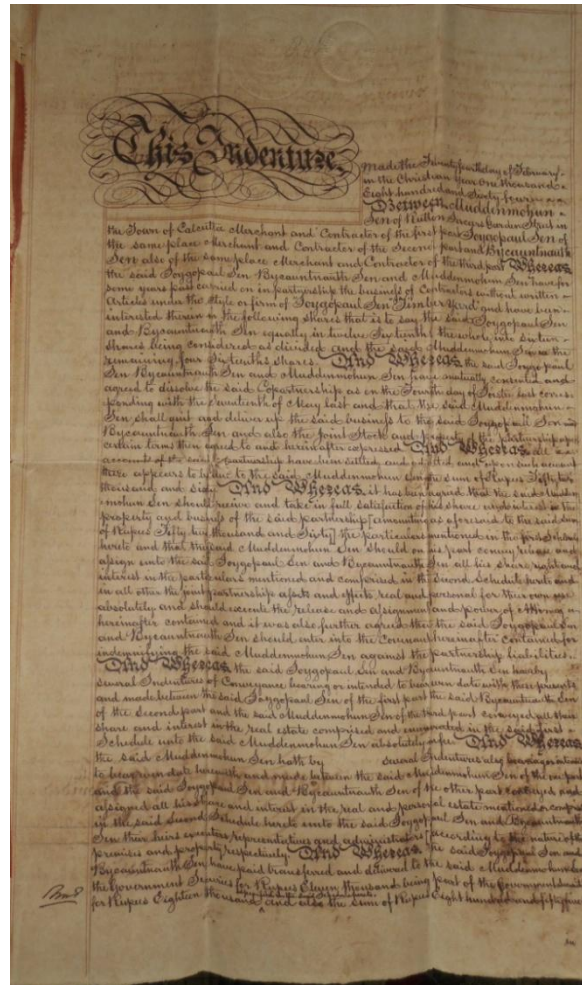 This Indenture,
made the Twenty fourth day of February
in the Christian year One thousand
Eight hundred and Sixty four
Between Muddenmohun
Sen of Rutton Sircar's Garden Street in
the Town of Calcutta Merchant and Contractor of the first part Joygopaul Sen of
the same place Merchant and Contractor of the Second part and Bycauntnauth
Sen also of the same place Merchant and Contractor of the third part Whereas
the said Joygopaul Sen Bycauntnauth Sen and Muddenmohun Sen have for
some years past carried on in partnership the business of Contractors without written
Articles under the Style or firm of "Joygopaul Sen Timber Yard" and have been
interested therein in the following shares that is to say the said Joygopaul Sen
and Bycauntnauth Sen equally in twelve Sixteenths the whole into sixteen
shares being considered as divided and the said Muddenmohun Sen in the
remaining four Sixteenths shares. And Whereas the said Joygopaul
Sen Bycauntnauth Sen and Muddenmohun Sen have mutually consented and
agreed to dissolve the said Copartnership as on the Fourth day of last corres-
ponding with the of May last and that the said Muddenmohun
Sen shall quit and deliver up the said business to the said Joygopaul Sen and
Bycauntnauth Sen and also the Joint Stock and property of the partnership on
certain terms then agreed to and hereinafter expressed And Whereas all
accounts of the said Copartnership have been settled and and upon such account
there appears to be due to the said Muddenmohun Sen the sum of Rupees Fifty
thousand and Sixty And Whereas it has been agreed that the said Mudden-
mohun Sen should receive and take in full satisfaction of his share and interest in the
property and business of the said partnership [amounting as aforesaid to the said sum
of Rupees Fifty thousand and Sixty] the particulars mentioned in the first Schedule
hereto and that the said Muddenmohun Sen should on his part convey release and
assign unto the said Joygopaul Sen and Bycauntnauth Sen all his share right and
interest in the particulars mentioned and comprised in the Second Schedule hereto and
in all other the joint partnership assets and effects real and personal for their own use
absolutely and should execute the release and assignment and power of Attorney
hereinafter contained and it was also further agreed that the said Joygopaul Sen
and Bycauntnauth Sen should enter into the Covenant hereinafter contained for
indemnifying the said Muddenmohun Sen against the partnership liabilities.
And Whereas the said Joygopaul Sen and Bycauntnauth Sen have by
several Indentures of Conveyance bearing or intended to bear even date with these presents
and made between the said Joygopaul Sen of the first part the said Bycauntnauth Sen
of the Second part and the said Muddenmohun Sen of the third part conveyed all their
share and interest in the real estate comprised and in the said first
Schedule unto the said Muddenmohun Sen absolutely And Whereas
the said Muddenmohun Sen hath by several Indentures
to bear even date herewith and made between the said Muddenmohun Sen of the one part
and the said Joygopaul Sen and Bycauntnauth Sen of the other part conveyed and
assigned all his share and interest in the real and personal estate mentioned or comprised
in the said Second Schedule hereto unto the said Joygopaul Sen and Bycauntnauth
Sen their heirs executors representatives and administrators [according to the nature of the
premises and property respectively And Whereas the said Joygopaul Sen and
Bycauntnauth Sen have paid transferred and delivered to the said Muddenmohun Sen
the Government Securities for Rupees Eleven thousand being part of the Government
for Rupees Eighteen thousand and also the sum of Rupees Eight hundred and fifty five